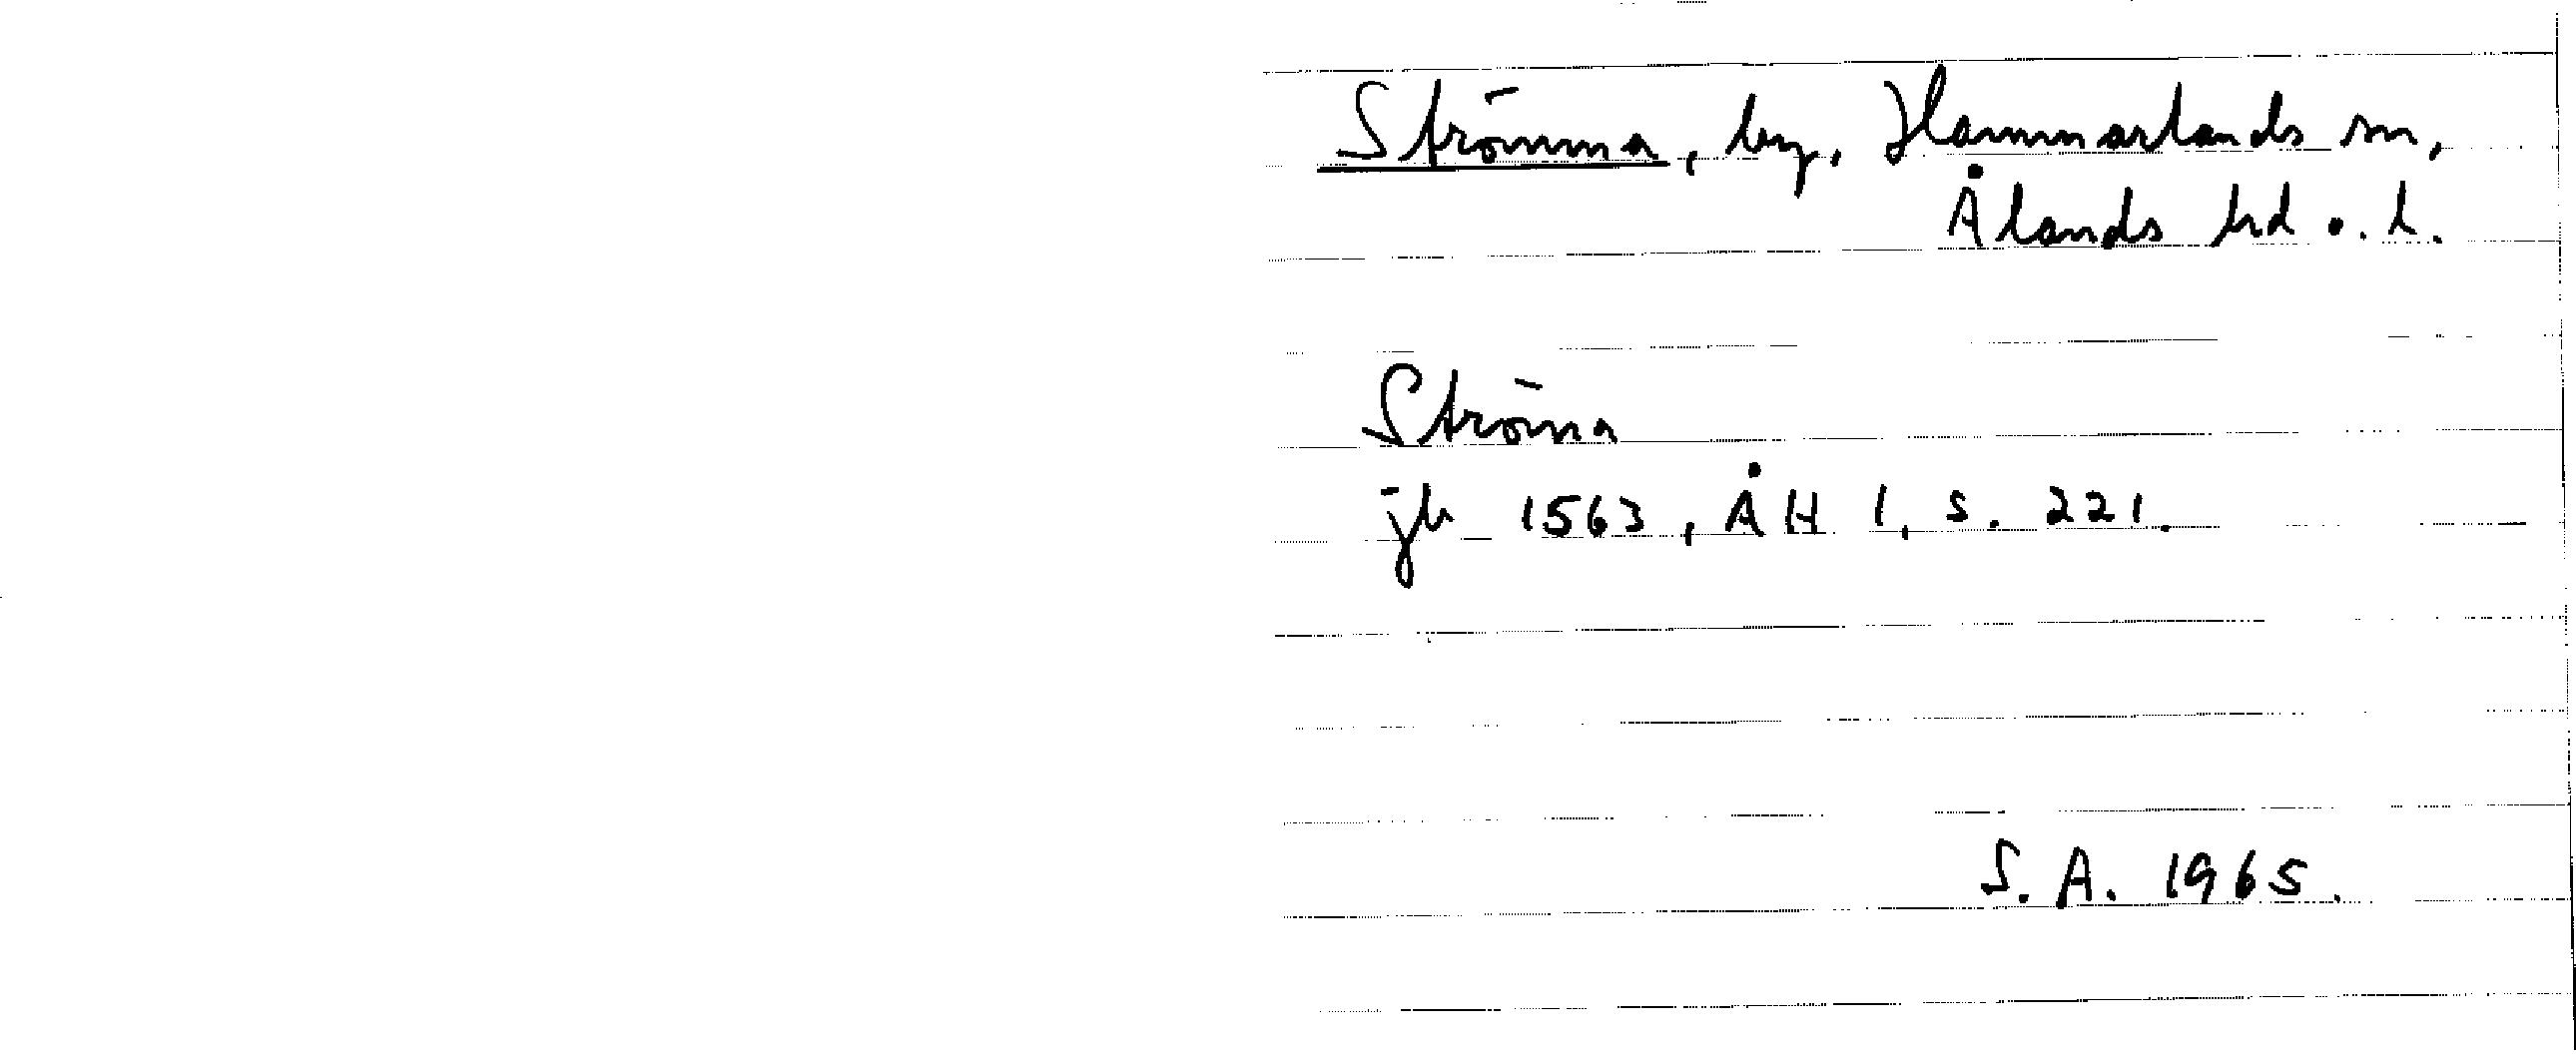 Strömma, by, Hammarlands sn,
Ålands hd o. l.
Ströma
jb 1563, ÅH 1, s. 221.
S. A. 1965.